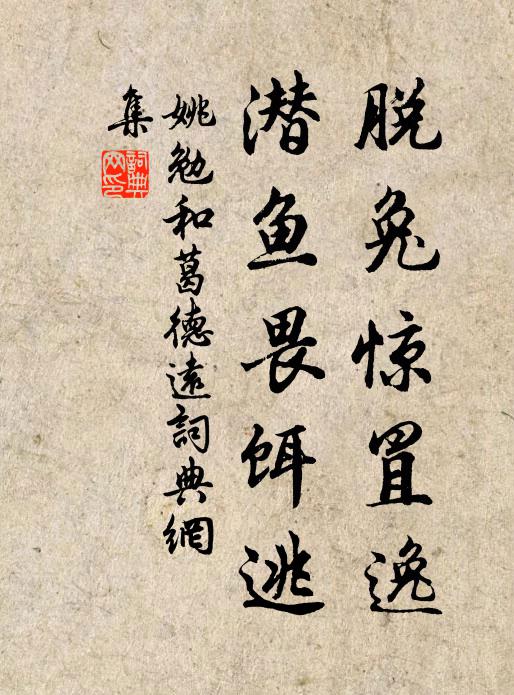 脱兔惊罝逸
潜鱼畏饵逃
姚勉和葛德遠詞典網
集
詞典
网印